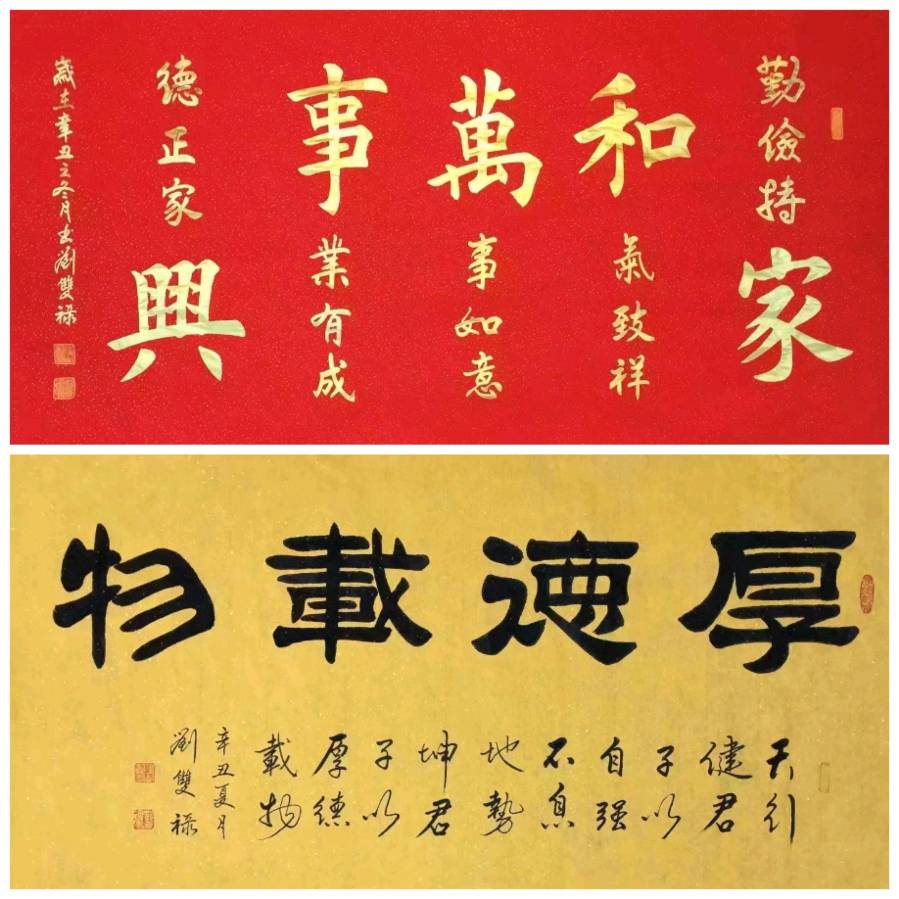 勤儉持家
和氣致祥
萬事如意
事業有成
德正家興
歲在辛丑之冬月書劉雙祿
厚德載物
天行
健君
子以
自强
不息
地勢
坤君
子以
厚德
載物
辛丑夏月
劉雙祿